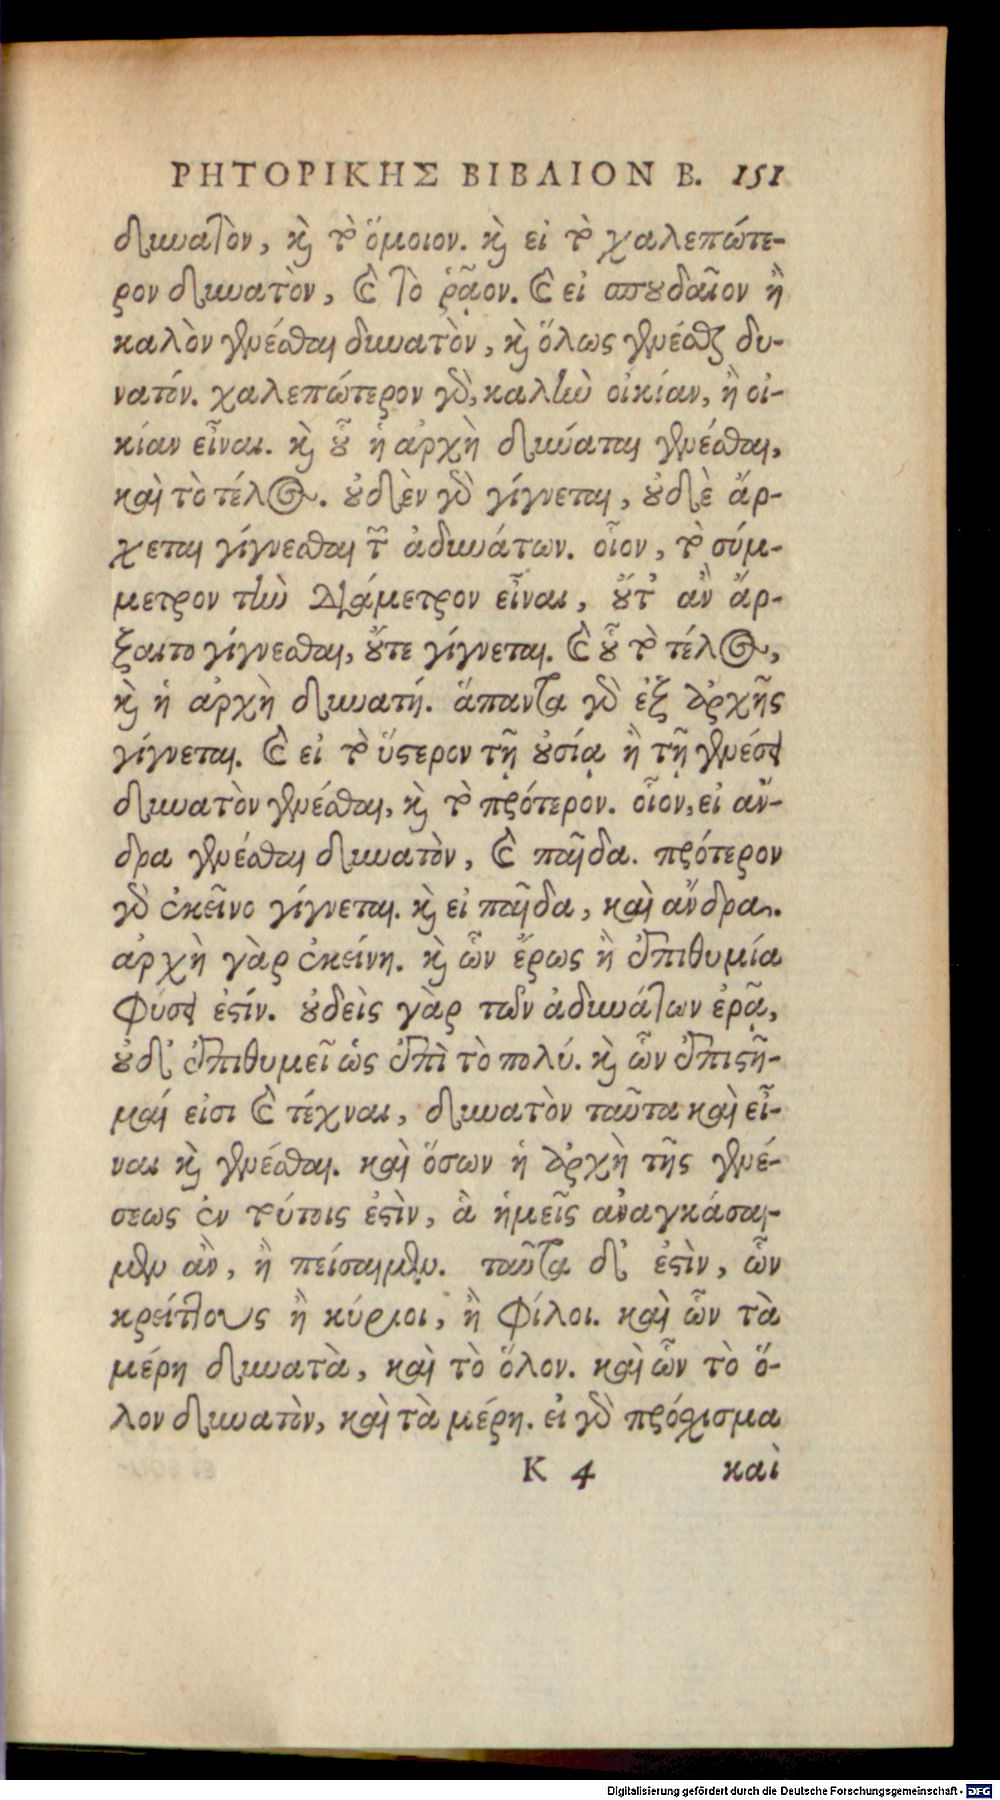 ΡΗΤΟΡΙΚΗΣ ΒΙΒΛΙΟΝ Β. 151
δυνατὸν, καὶ τὸ ὅμοιον. καὶ εἰ τὸ χαλεπώτε-
ρον δυνατὸν, καὶ τὸ ῥᾷον. καὶ εἰ σπουδαῖον ἢ
καλὸν γενέσθαι δυνατὸν, καὶ ὅλως γενέσθαι δυ-
νατόν. χαλεπώτερον γὰρ, καλὴν οἰκίαν, ἢ οἰ-
κίαν εἶναι. καὶ οὗ ἡ ἀρχὴ δύναται γενέσθαι,
καὶ τὸ τέλος. οὐδὲν γὰρ γίγνεται, οὐδὲ ἄρ-
χεται γίγνεσθαι τῶν ἀδυνάτων. οἷον, τὸ σύμ-
μετρον τὴν διάμετρον εἶναι, οὔτ' ἂν ἄρ-
ξαιτο γίγνεσθαι, οὔτε γίγνεται. καὶ οὗ τὸ τέλος,
καὶ ἡ ἀρχὴ δυνατή. ἅπαντα γὰρ ἐξ ἀρχῆς
γίγνεται. καὶ εἰ τὸ ὕστερον τῇ οὐσίᾳ ἢ τῇ γενέσει
δυνατὸν γενέσθαι, καὶ τὸ πρότερον. οἷον, εἰ ἄν-
δρα γενέσθαι δυνατὸν, καὶ παῖδα. πρότερον
γὰρ ἐκεῖνο γίγνεται. καὶ εἰ παῖδα, καὶ ἄνδρα.
ἀρχὴ γὰρ ἐκείνη. καὶ ὧν ἔρως ἢ ἐπιθυμία
φύσει ἐστίν. οὐδεὶς γὰρ τῶν ἀδυνάτων ἐρᾷ,
οὐδ' ἐπιθυμεῖ ὡς ἐπὶ τὸ πολύ. καὶ ὧν ἐπιστῆ-
μαί εἰσι καὶ τέχναι, δυνατὸν ταῦτα καὶ εἶ-
ναι καὶ γενέσθαι. καὶ ὅσων ἡ ἀρχὴ τῆς γενέ-
σεως ἐν τούτοις ἐστὶν, ἃ ἡμεῖς ἀναγκάσαι-
μεν ἂν, ἢ πείσαιμεν. ταῦτα δ' ἐστὶν, ὧν
κρείττους ἢ κύριοι, ἢ φίλοι. καὶ ὧν τὰ
μέρη δυνατὰ, καὶ τὸ ὅλον. καὶ ὧν τὸ ὅ-
λον δυνατὸν, καὶ τὰ μέρη. εἰ γὰρ πρόσχισμα
Κ 4 καὶ
Digitalisierung gefördert durch die Deutsche Forschungsgemeinschaft - DFG